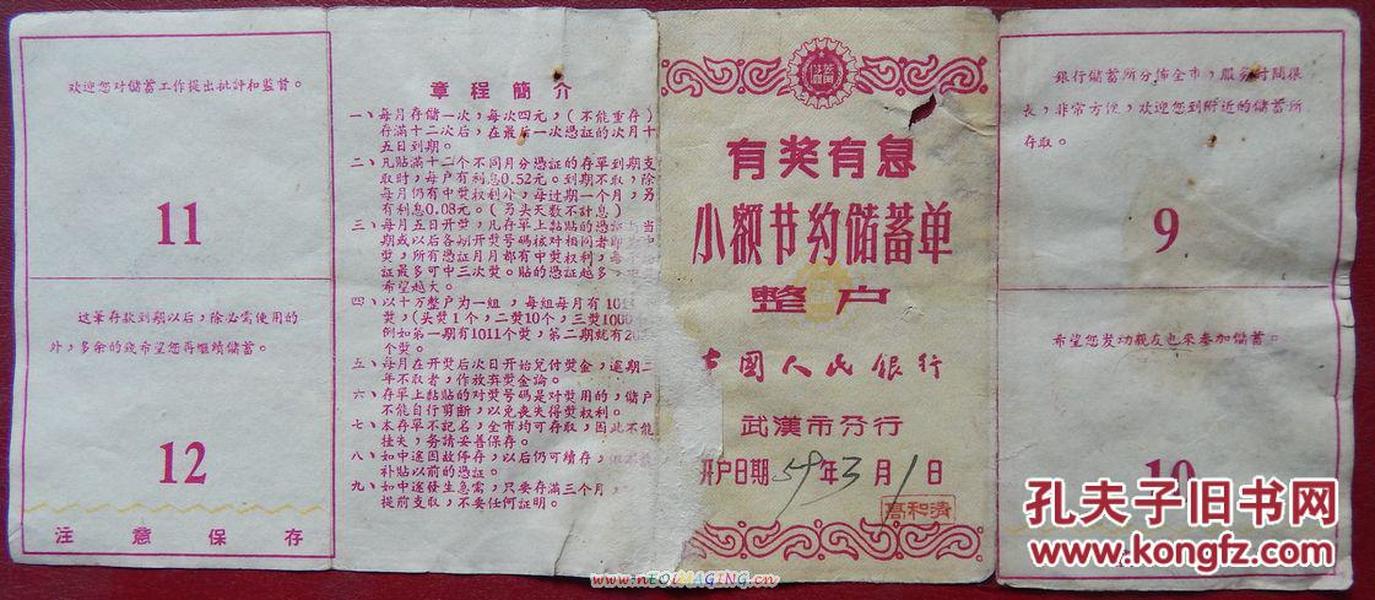 欢迎您对储蓄工作提出批評和監督。
11
这筆存款到期以后，除必需使用的
外，多余的錢希望您再繼續儲蓄。
12
注意保存
章程簡介
一、每月存儲一次，每次四元，（不能重存）
存滿十二次后，在最后一次憑証的次月十
五日到期。
二、凡貼滿十二个不同月分憑証的存單到期支
取时，每户有利息0.52元。到期不取，除
每月仍有中獎权利外，每过期一个月，另
有利息0.08元。（另头天数不計息）
三、每月五日开獎，凡存單上黏貼的憑証与当
期或以后各期开獎号碼核对相同者即
獎，所有憑証月月都有中獎权利，每
証最多可中三次獎。貼的憑証越多，中獎
希望越大。
四、以十万整户为一組，每組每月有1011
獎，（头獎1个，二獎10个，三獎1000
例如第一期有1011个獎，第二期就有20
个獎。
五、每月在开獎后次日开始兌付獎金，逾期二
年不取者，作放弃獎金論。
六、存單上黏貼的对獎号碼是对獎用的，儲户
不能自行剪断，以免丧失得獎权利。
七、本存單不記名，全市均可存取，因此不能
挂失，务請妥善保存。
八、如中途因故停存，以后仍可續存，
补貼以前的憑証。
九、如中途發生急需，只要存滿三个月，
提前支取，不要任何証明。
有奖有息
小额节约储蓄单
整户
国人民銀行
武漢市分行
开户日期59年3月1日
高和濟
銀行儲蓄所分佈全市，服务时間很
長，非常方便，欢迎您到附近的儲蓄所
存取。
9
希望您发动親友也来参加儲蓄。
10
孔夫子旧书网
www.kongfz.com
www.nEOiMAGING.cn